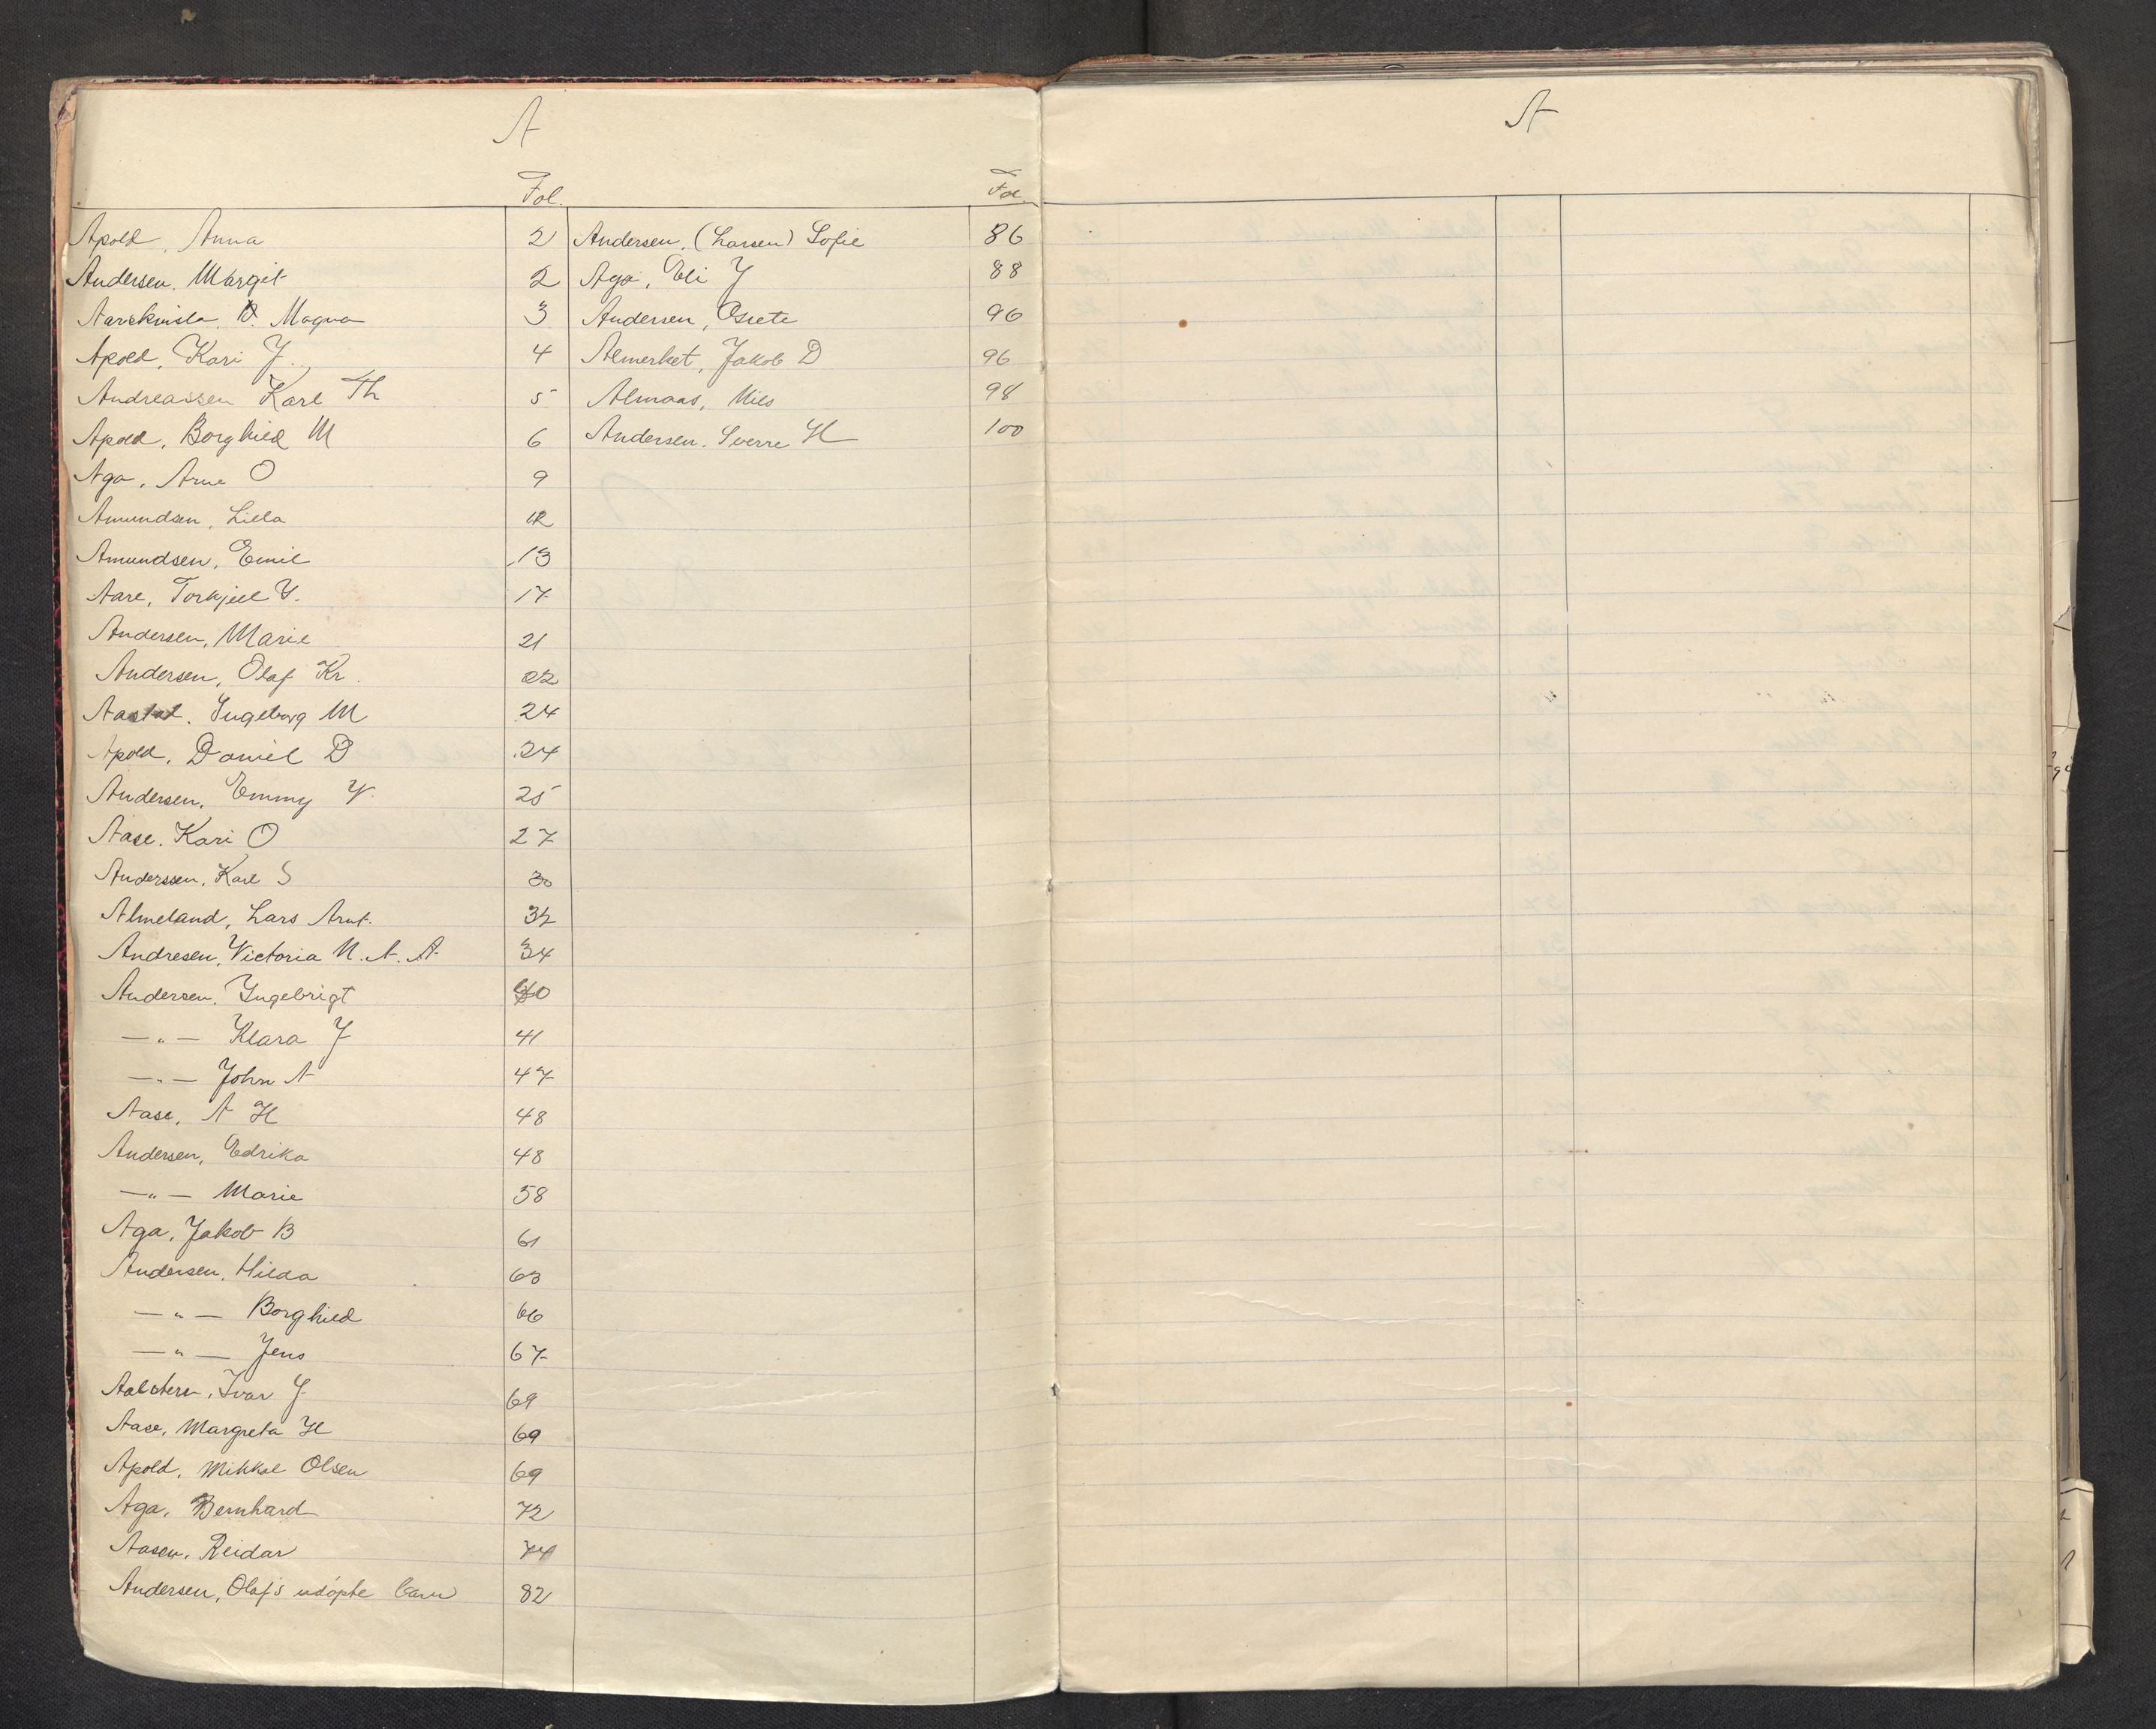 A
Fol.
Apold, Anna 2
Andersen, Margit 2
Magna 3
Apold, Kari J. 4
Andreassen Karl Th 5
Apold, Borghild M 6
Aga, Arne O 9
Amundsen, Lilla 12
Amundsen, Emil 13
Aare, Torkjell 17
Andersen, Marie 21
Andersen, Olaf Kr. 22
Ingeborg M 24
Apold, Daniel D 24
Andersen, Emmy V. 25
Aase. Kari O 27
Anderssen, Karl S 30
Almeland, Lars Arnt. 32
Andresen, Victoria N. A. A. 34
Andersen, Ingebrigt 40
—„— Klara J 41
—„— John A 47
Aase, A H 48
Andersen, Edrika 48
—„— Marie 58
Aga, Jakob B 61
Andersen, Hilda 63
—„— Borghild 66
—„— Jens 67
Ivar J 69
Aase, Margreta H 69
Apold, Mikkal Olsen 69
Aga, Bernhard 72
Aasen, Reidar 74
Andersen, Olaf's udöpte barn 82
Fol.
Andersen, (Larsen) Sofie 86
Aga, Eli J 88
Andersen, 96
Almerket, Jakob D 96
Almaas, Nils 98
Andersen, Sverre H 100
A